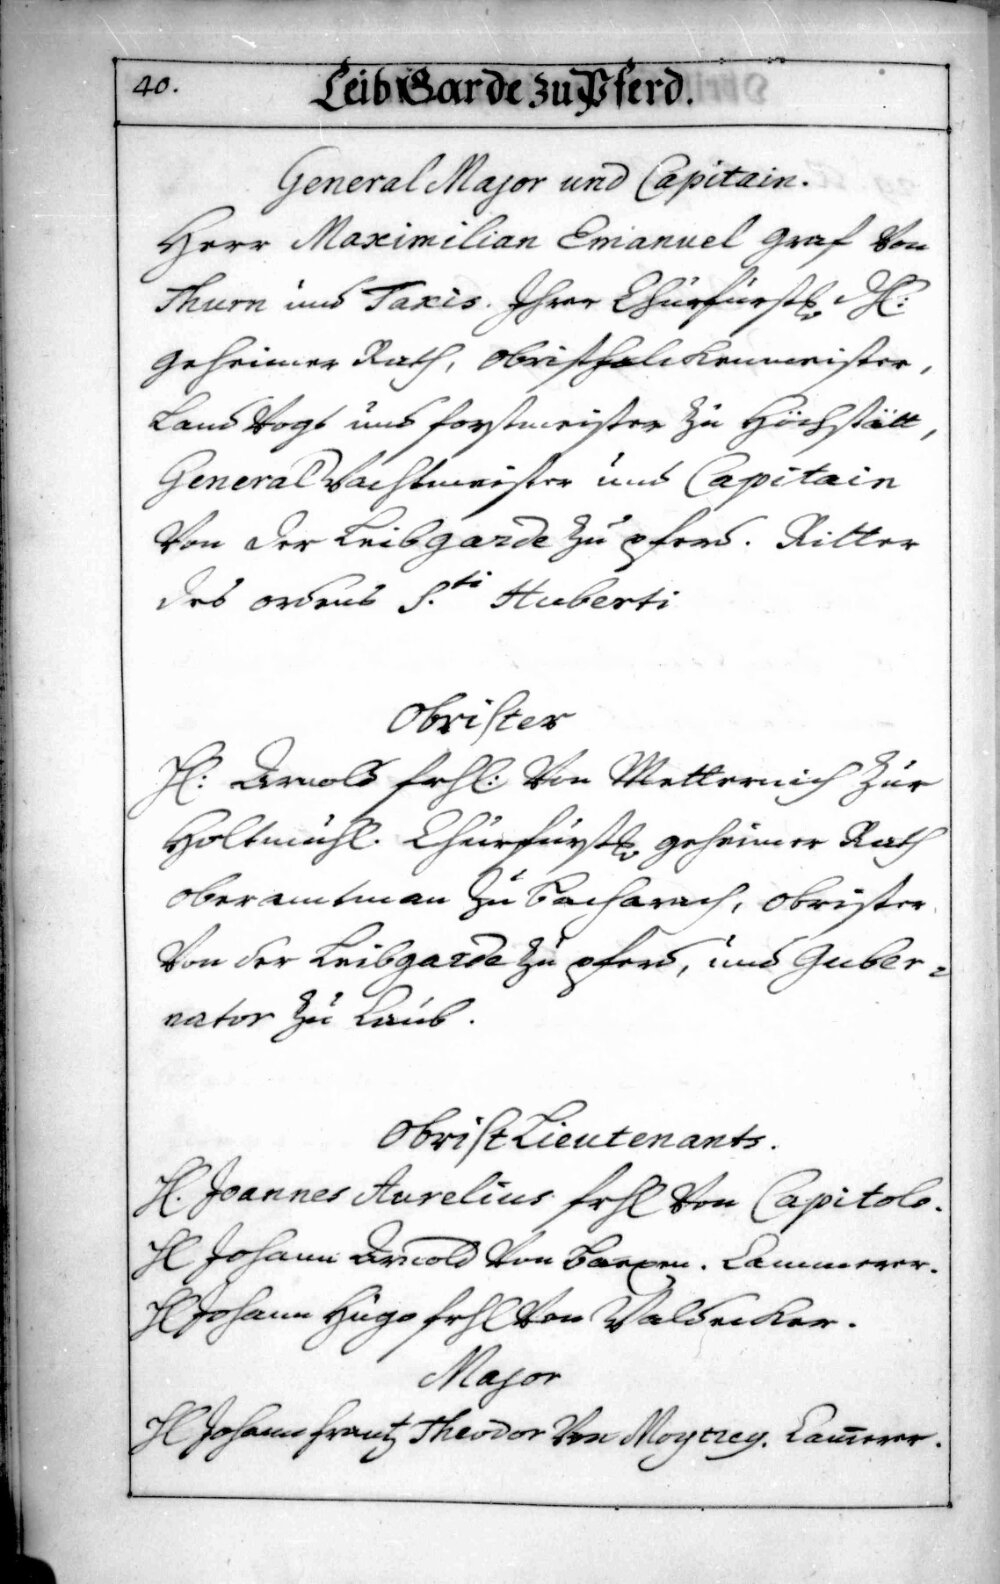 40.
Leib Garde zu Pferd.
General Major und Capitain.
Herr Maximilian Emanuel Graf Von
Thurn und Taxis. Ihrer Churfürstl. Dhl:
geheimer Rath, Obristfalckenmeister,
Land Vogt und forstmeister zu Höchstätt,
General Wachtmeister und Capitain
Von der Leibgarde zu pferd. Ritter
des ordens S.ti Huberti
Obrister
H: Arnold frhl: Von Metternich zur
Holtmühl. Churfürstl. geheimer Rath
oberamtman zu Bacharach, obrister
Von der Leibgarde zu pferd, und Guber=
nator zu Caub.
Obrist Lieutenants.
H. Joannes Aurelius frhl Von Capitolo.
H Johann Arnold Von . Cammerer.
H Johann Hugo frhl Von Waldecker.
Major
H Johann frantz Theodor Von . Cam̄erer.